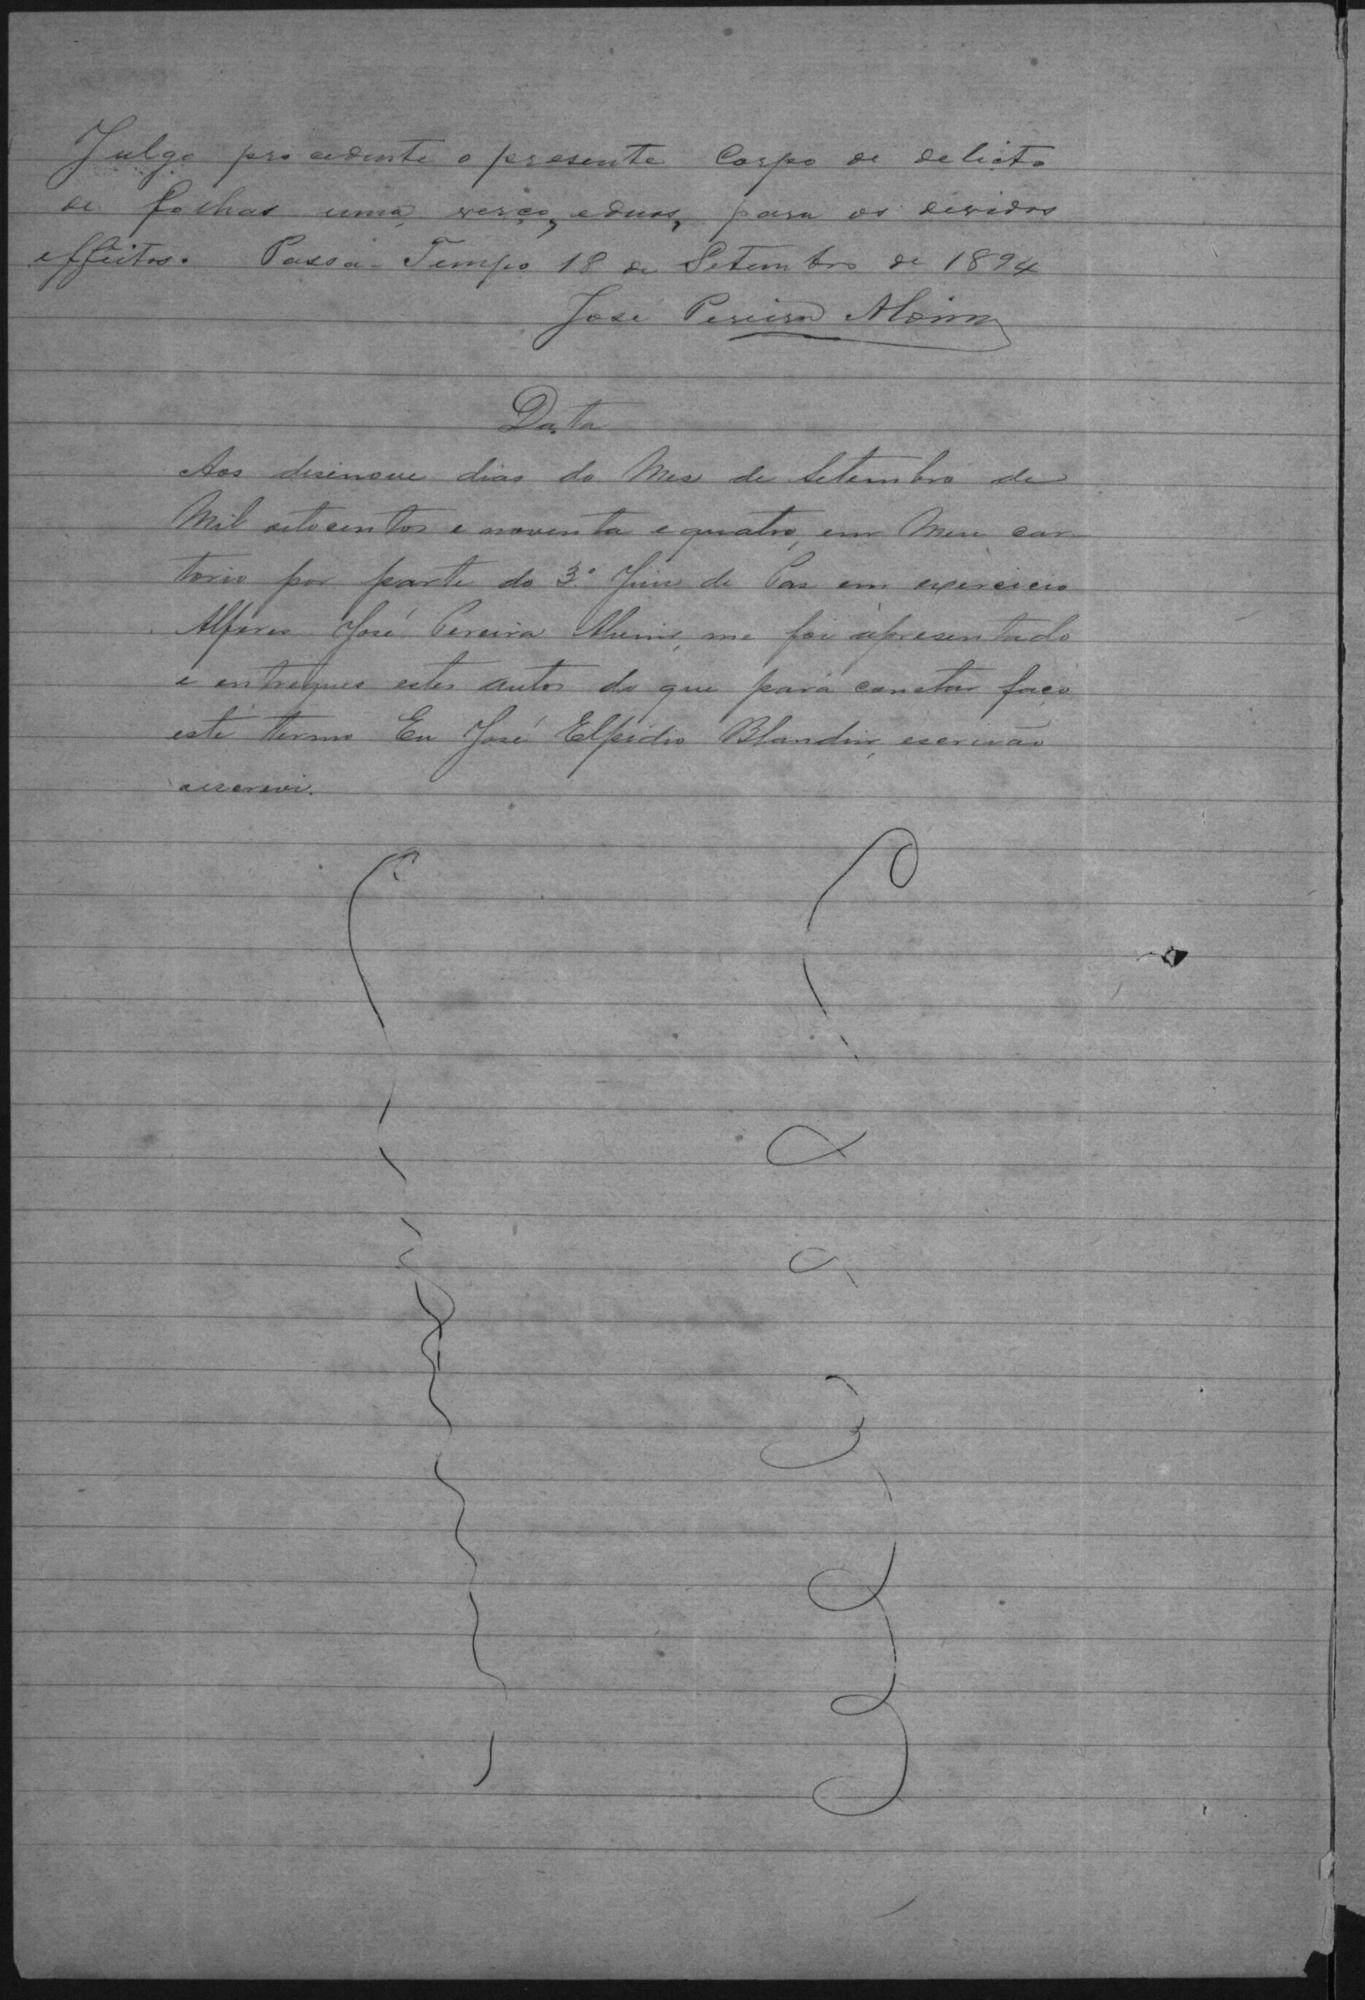 Julgo procedente o presente Corpo de delicto
de folhas uma, verço, e duas, para os devidos
effeitos. Passa-Tempo 18 de Setembro de 1894
José Pereira
Data
Aos desenove dias do Mes de Setembro de
Mil oitocentos e noventa e quatro, em Meu car
torio por parte do 3º Juis de Pas em exercicio
Alferes José Pereira me foi apresentado
e entregues estes autos do que para constar faço
este termo Eu José Elpidio Blandin, escrivão
escrevi.